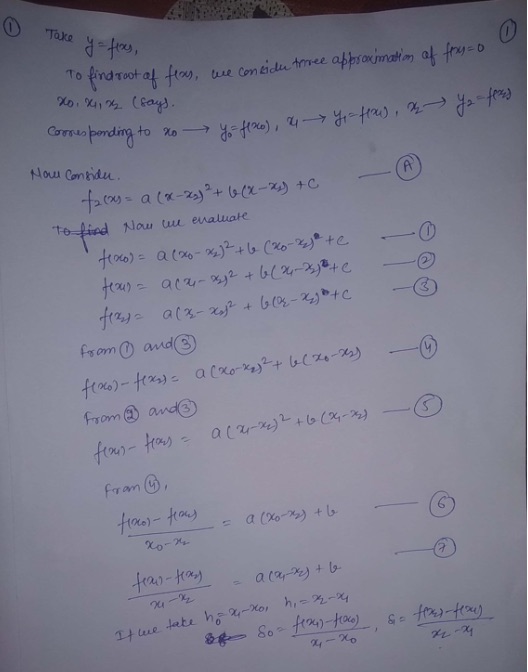 ① Take y = f(x), ①
To find root of f(x), we consider three approximation of f(x)=0
x₀, x₁, x₂ (say).
Corresponding to x₀ → y₀=f(x₀), x₁ → y₁=f(x₁), x₂ → y₂=f(x₂)
Now Consider.
f₂(x) = a(x-x₂)² + b(x-x₂) + C — Ⓐ
To find Now we evaluate
f(x₀) = a(x₀-x₂)² + b(x₀-x₂) + C — ①
f(x₁) = a(x₁-x₂)² + b(x₁-x₂) + C — ②
f(x₂) = a(x₂-x₂)² + b(x₂-x₂) + C — ③
From ① and ③
f(x₀) - f(x₂) = a(x₀-x₂)² + b(x₀-x₂) — ④
From ② and ③
f(x₁) - f(x₂) = a(x₁-x₂)² + b(x₁-x₂) — ⑤
From ④,
(f(x₀) - f(x₂))/(x₀-x₂) = a(x₀-x₂) + b — ⑥
(f(x₁) - f(x₂))/(x₁-x₂) = a(x₁-x₂) + b — ⑦
If we take h₀ = x₁-x₀, h₁ = x₂-x₁
δ₀ = (f(x₁)-f(x₀))/(x₁-x₀), δ₁ = (f(x₂)-f(x₁))/(x₂-x₁)